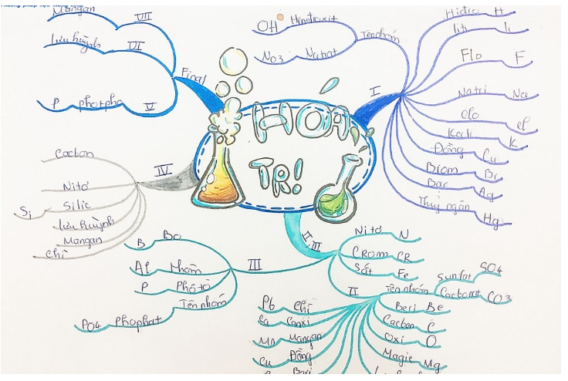 HÓA
TRỊ
Final
VII
Mangan
VI
Lưu huỳnh
V
P photpho
I
Tên nhóm
OH Hiđroxit
NO3 Nitrat
Hiđro H
Liti Li
Flo F
Natri Na
Clo cl
Kali K
Đồng Cu
Brom Br
Bạc Ag
Thuỷ ngân Hg
IV
Cacbon
Nitơ
Si Silic
Lưu huỳnh
Mangan
chì
II, III
Nitơ N
CROM CR
Sắt Fe
III
B Bo
Al Nhôm
P Phốtpho
Tên nhóm
PO4 Phophat
II
Tên nhóm
Sunfat SO4
Cacbonat CO3
Beri Be
Cacbon C
Oxi O
Magie Mg
Pb Chì
Ca Canxi
Mn Mangan
Cu Đồng
Bari